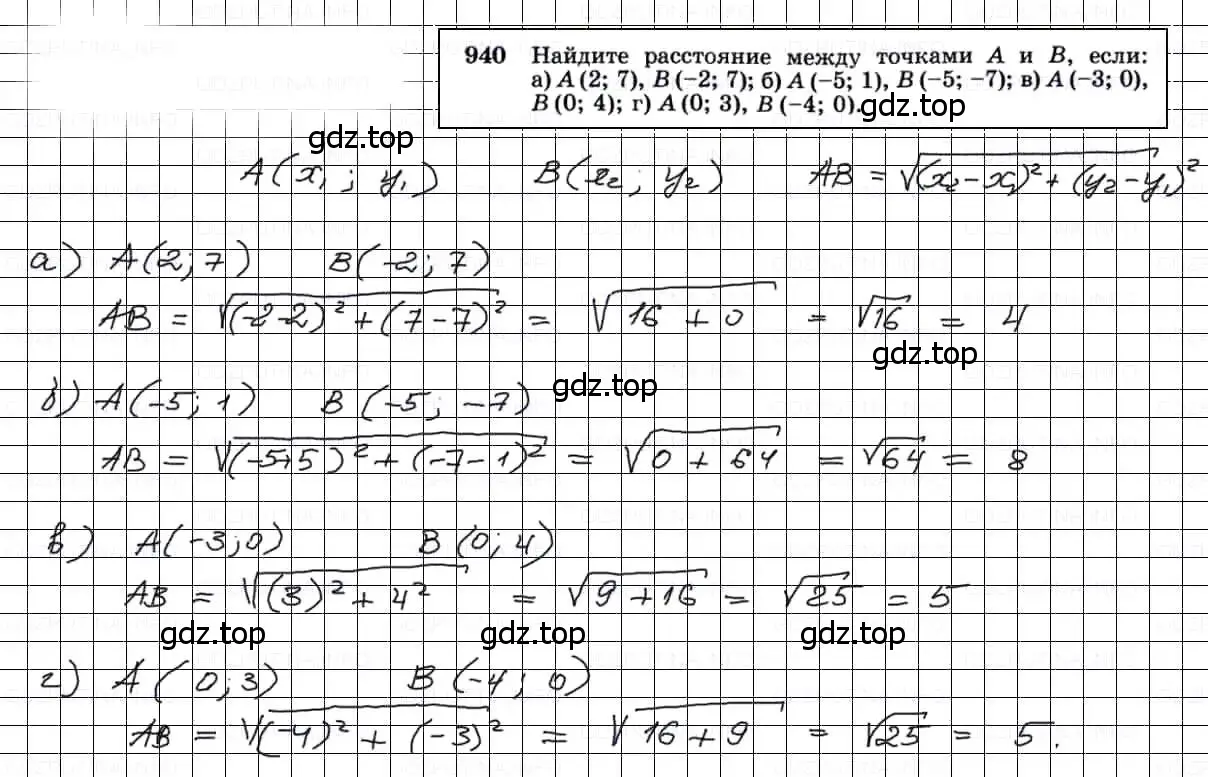 940 Найдите расстояние между точками A и B, если:
а) A (2; 7), B (−2; 7); б) A (−5; 1), B (−5; −7); в) A (−3; 0),
B (0; 4); г) A (0; 3), B (−4; 0).
gdz.top
A(x₁; y₁) B(x₂; y₂) AB = √(x₂−x₁)²+(y₂−y₁)²
а) A(2;7) B(−2;7)
AB = √(−2−2)²+(7−7)² = √16+0 = √16 = 4
gdz.top
gdz.top
б) A(−5; 1) B(−5; −7)
AB = √(−5+5)²+(−7−1)² = √0+64 = √64 = 8
в) A(−3;0) B(0; 4)
AB = √(3)²+4² = √9+16 = √25 = 5
gdz.top gdz.top gdz.top
г) A(0;3) B(−4; 0)
AB = √(−4)²+(−3)² = √16+9 = √25 = 5.